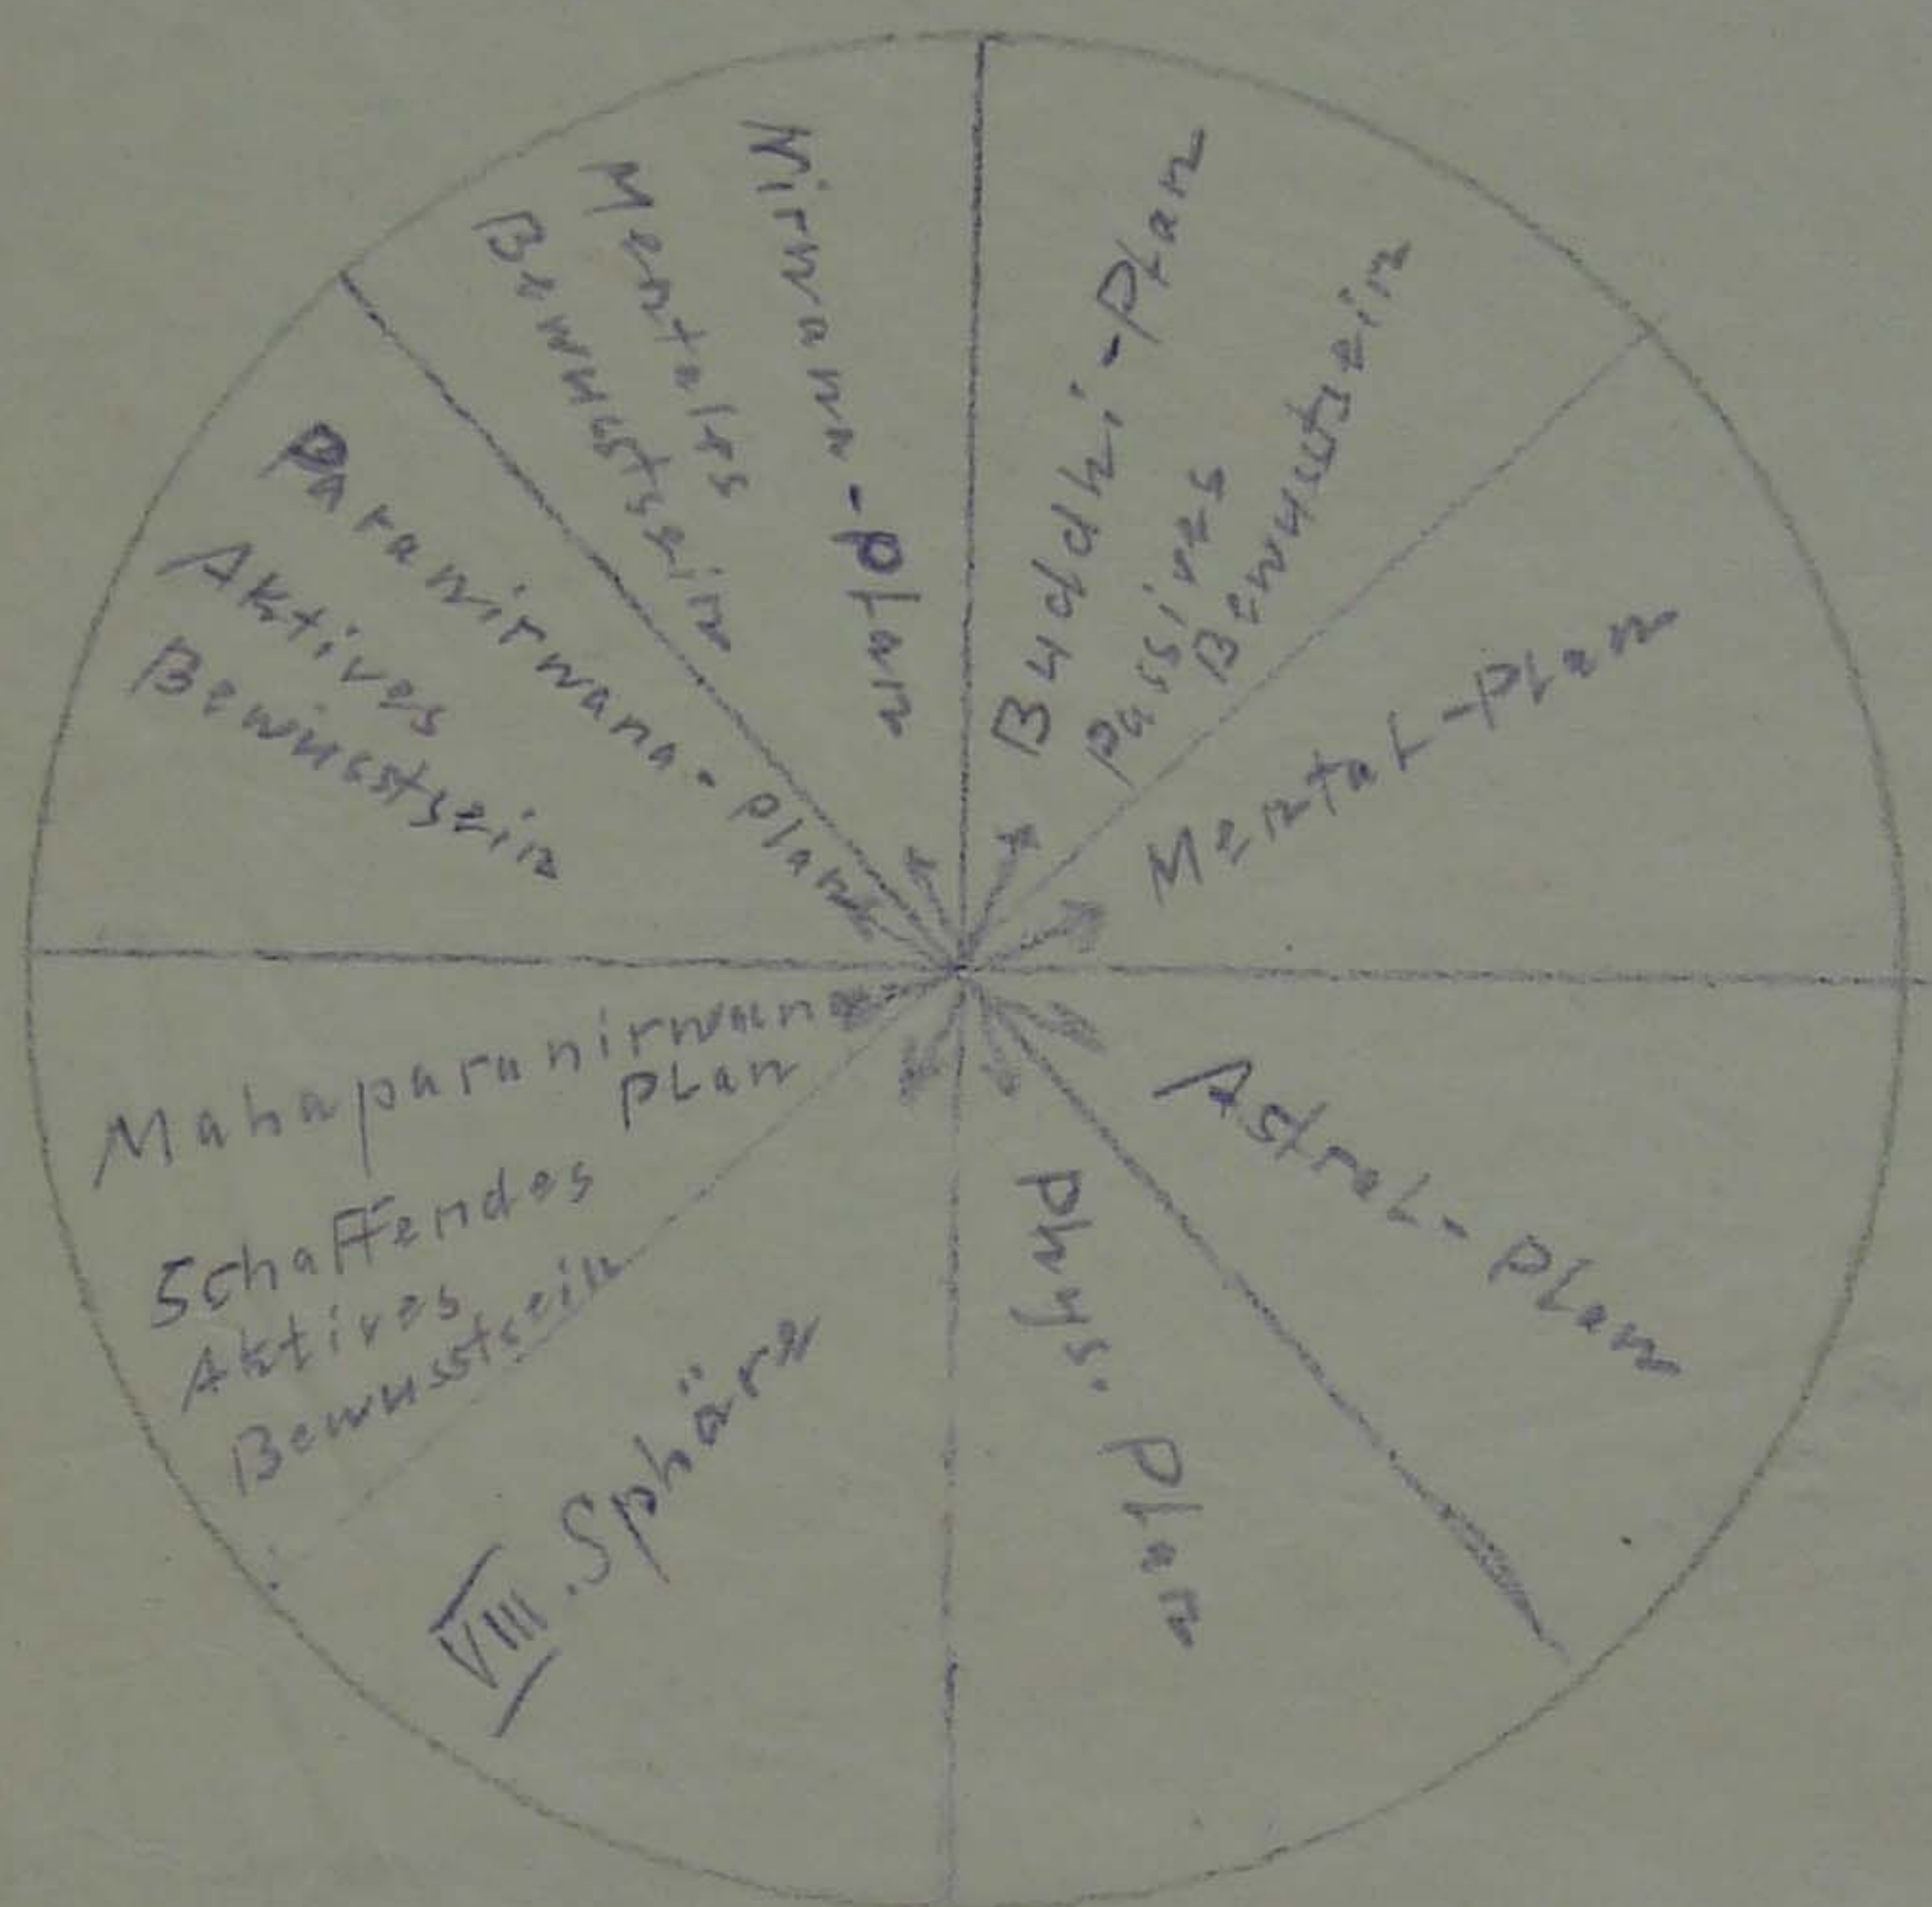 Nirwana-plan
Mentales
Bewusstsein
Buddhi-Plan
passives
Bewusstsein
Mental-Plan
Astral-Plan
phys. Plan
VIII. Sphäre
Mahaparanirwana
plan
Schaffendes
Aktives
Bewusstsein
Paranirwana-plan
Aktives
Bewusstsein